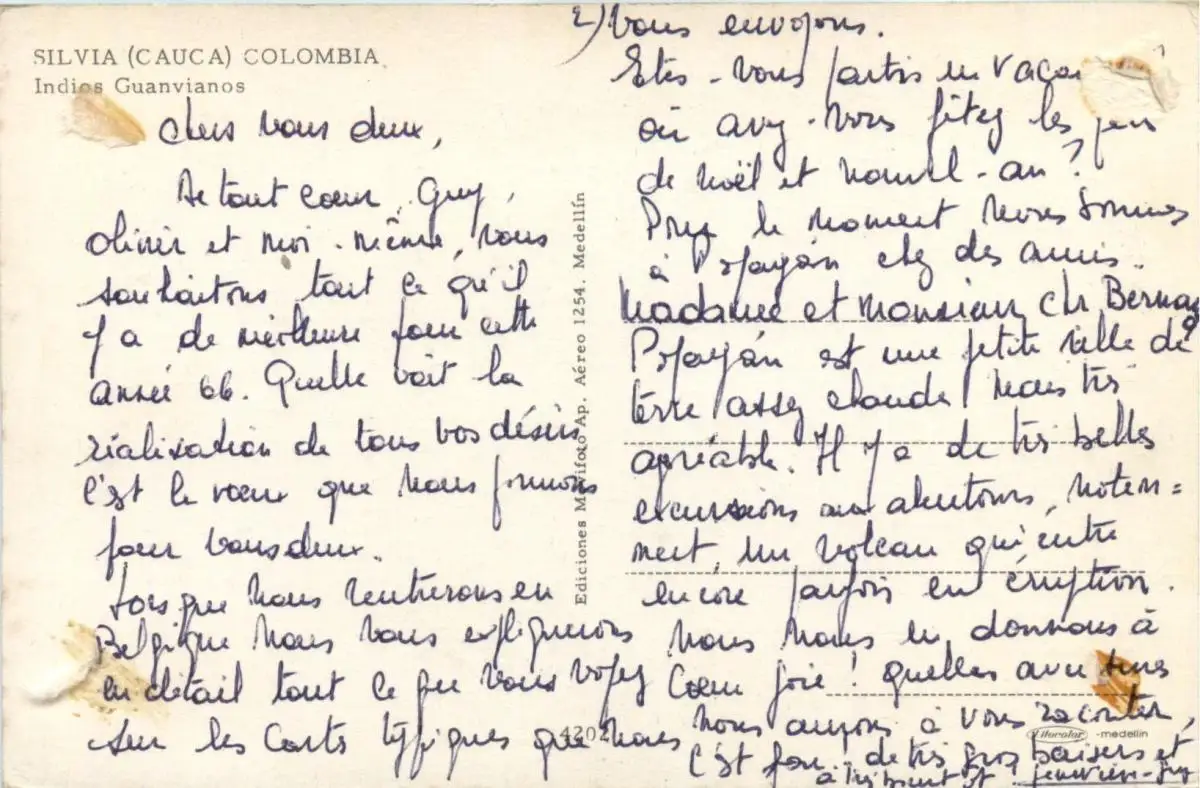 SILVIA (CAUCA) COLOMBIA
Indios Guanvianos
Chers vous deux,
De tout coeur, Guy,
Olivier et moi-même, vous
souhaitons tout ce qu'il
y a de meilleure pour cette
année 66. Quelle voit la
réalisation de tous vos désirs
c'est le voeux que nous formons
pour vous deux.
Lorsque nous rentrerons en
Belgique nous vous expliquerons
en détail tout ce que vous voyez
sur les cartes typiques que nous
Ediciones Movifoto Ap. Aéreo 1254. Medellín
4202
2) vous envoyons.
Etes-vous partis en vacan
où avez-vous fêtez les
de Noël et nouvel-an?
Pour le moment nous sommes
à Popayán chez des amis.
Madame et Monsieur Ch. Bernas
Popayán est une petite ville de
terre assez chaude mais très
agréable. Il y a de très belles
excursions aux alentours, notem=
ment, un volcan qui entre
encore parfois en éruption.
Nous nous en donnons à
Coeur joie! quelles aventures
nous aurons à vous raconter,
c'est fou. de très gros baisers et
à très bientôt. Geneviève-Guy
Litocolor -medellín